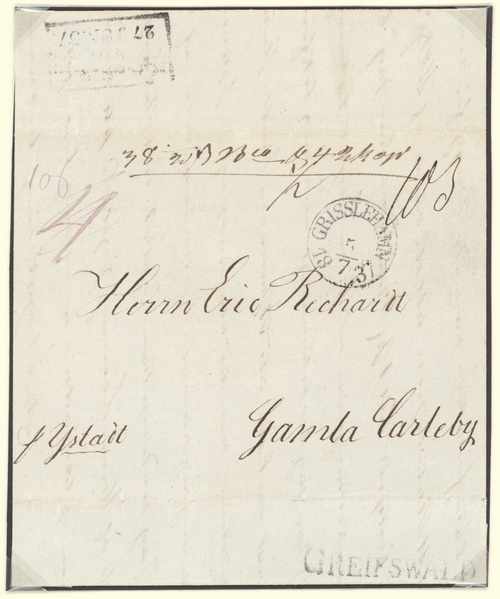 27 JUN. 37
106
103
GRISSLEHAMN
5
7
1837
Herrn Eric Richardt
p Ystadt
Gamla Carleby
GREIFSWALD